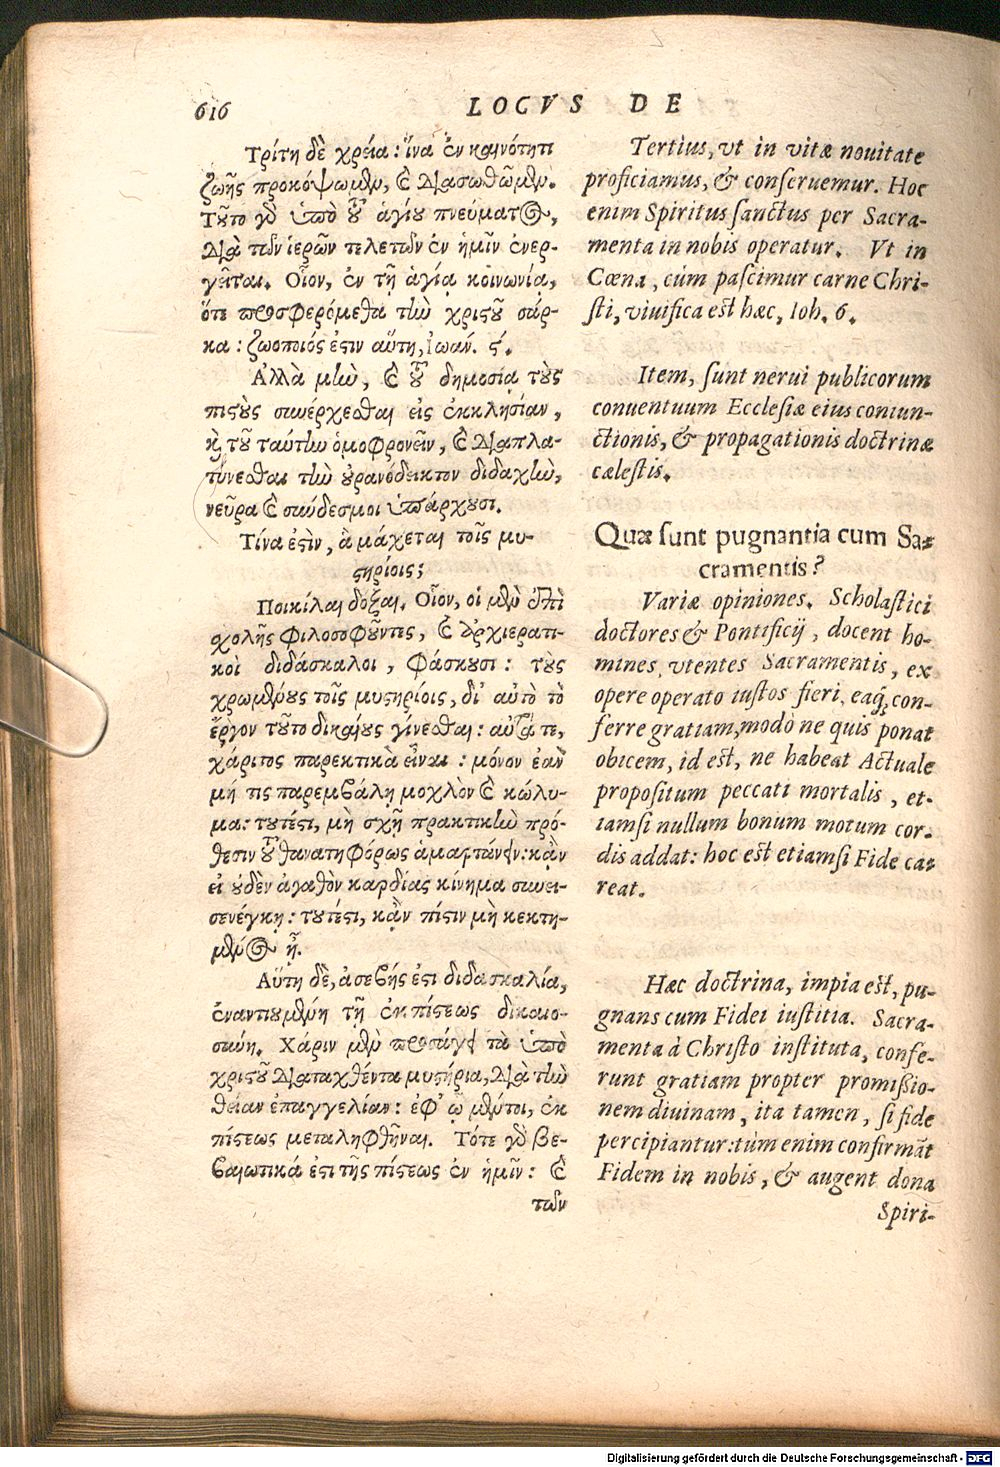 616
LOCVS DE
Τρίτη δὲ χρεία: ἵνα ἐν καινότητι
ζωῆς προκόψωμεν, καὶ διασωθῶμεν.
Τοῦτο γὰρ ὑπὸ τοῦ ἁγίου πνεύματος,
διὰ τῶν ἱερῶν τελετῶν ἐν ἡμῖν ἐνερ-
γεῖται. Οἷον, ἐν τῇ ἁγίᾳ κοινωνίᾳ,
ὅτε προσφερόμεθα τὴν χριστοῦ σάρ-
κα: ζωοποιός ἐστιν αὕτη, ἰωαν. ϛ.
Ἀλλὰ μὴν, καὶ τοῦ δημοσίᾳ τοὺς
πιστοὺς συνέρχεσθαι εἰς ἐκκλησίαν,
καὶ τοῦ ταύτην ὁμοφρονεῖν, καὶ διαπλα-
τύνεσθαι τὴν οὐρανόδεικτον διδαχὴν,
νεῦρα καὶ σύνδεσμοι ὑπάρχουσι.
Τίνα ἐστὶν, ἃ μάχεται τοῖς μυ-
στηρίοις;
Ποικίλαι δόξαι. Οἷον, οἱ μὲν ἐπὶ
σχολῆς φιλοσοφοῦντες, καὶ ἀρχιερατι-
κοὶ διδάσκαλοι, φάσκουσι: τοὺς
χρωμένους τοῖς μυστηρίοις, δι' αὐτὸ τὸ
ἔργον τοῦτο δικαίους γίνεσθαι: αὐτά τε,
χάριτος παρεκτικὰ εἶναι: μόνον ἐὰν
μή τις παρεμβάλῃ μοχλὸν καὶ κώλυ-
μα: τουτέστι, μὴ σχῇ πρακτικὴν πρό-
θεσιν τοῦ θανατηφόρως ἁμαρτάνειν: κἂν
εἰ οὐδὲν ἀγαθὸν καρδίας κίνημα συνει-
σενέγκῃ: τουτέστι, κἂν πίστιν μὴ κεκτη-
μένος ᾖ.
Αὕτη δὲ, ἀσεβής ἐστι διδασκαλία,
ἐναντιουμένη τῇ ἐκ πίστεως δικαιο-
σύνῃ. Χάριν μὲν προσάγει τὰ ὑπὸ
χριστοῦ διαταχθέντα μυστήρια, διὰ τὴν
θείαν ἐπαγγελίαν: ἐφ' ᾧ μέντοι, ἐκ
πίστεως μεταληφθῆναι. Τότε γὰρ βε-
βαιωτικά ἐστι τῆς πίστεως ἐν ἡμῖν: καὶ
τῶν
Tertius, vt in vitæ nouitate
proficiamus, & conseruemur. Hoc
enim Spiritus sanctus per Sacra-
menta in nobis operatur. Vt in
Cœna, cùm pascimur carne Chri-
sti, viuifica est hæc, Ioh. 6.
Item, sunt nerui publicorum
conuentuum Ecclesiæ eius coniun-
ctionis, & propagationis doctrinæ
cælestis.
Quæ sunt pugnantia cum Sa-
cramentis?
Variæ opiniones. Scholastici
doctores & Pontificij, docent ho-
mines, vtentes Sacramentis, ex
opere operato iustos fieri, eaq́; con-
ferre gratiam, modò ne quis ponat
obicem, id est, ne habeat Actuale
propositum peccati mortalis, et-
iamsi nullum bonum motum cor-
dis addat: hoc est etiamsi Fide ca-
reat.
Hæc doctrina, impia est, pu-
gnans cum Fidei iustitia. Sacra-
menta à Christo instituta, confe-
runt gratiam propter promißio-
nem diuinam, ita tamen, si fide
percipiantur: tùm enim confirmāt
Fidem in nobis, & augent dona
Spiri-
Digitalisierung gefördert durch die Deutsche Forschungsgemeinschaft - DFG